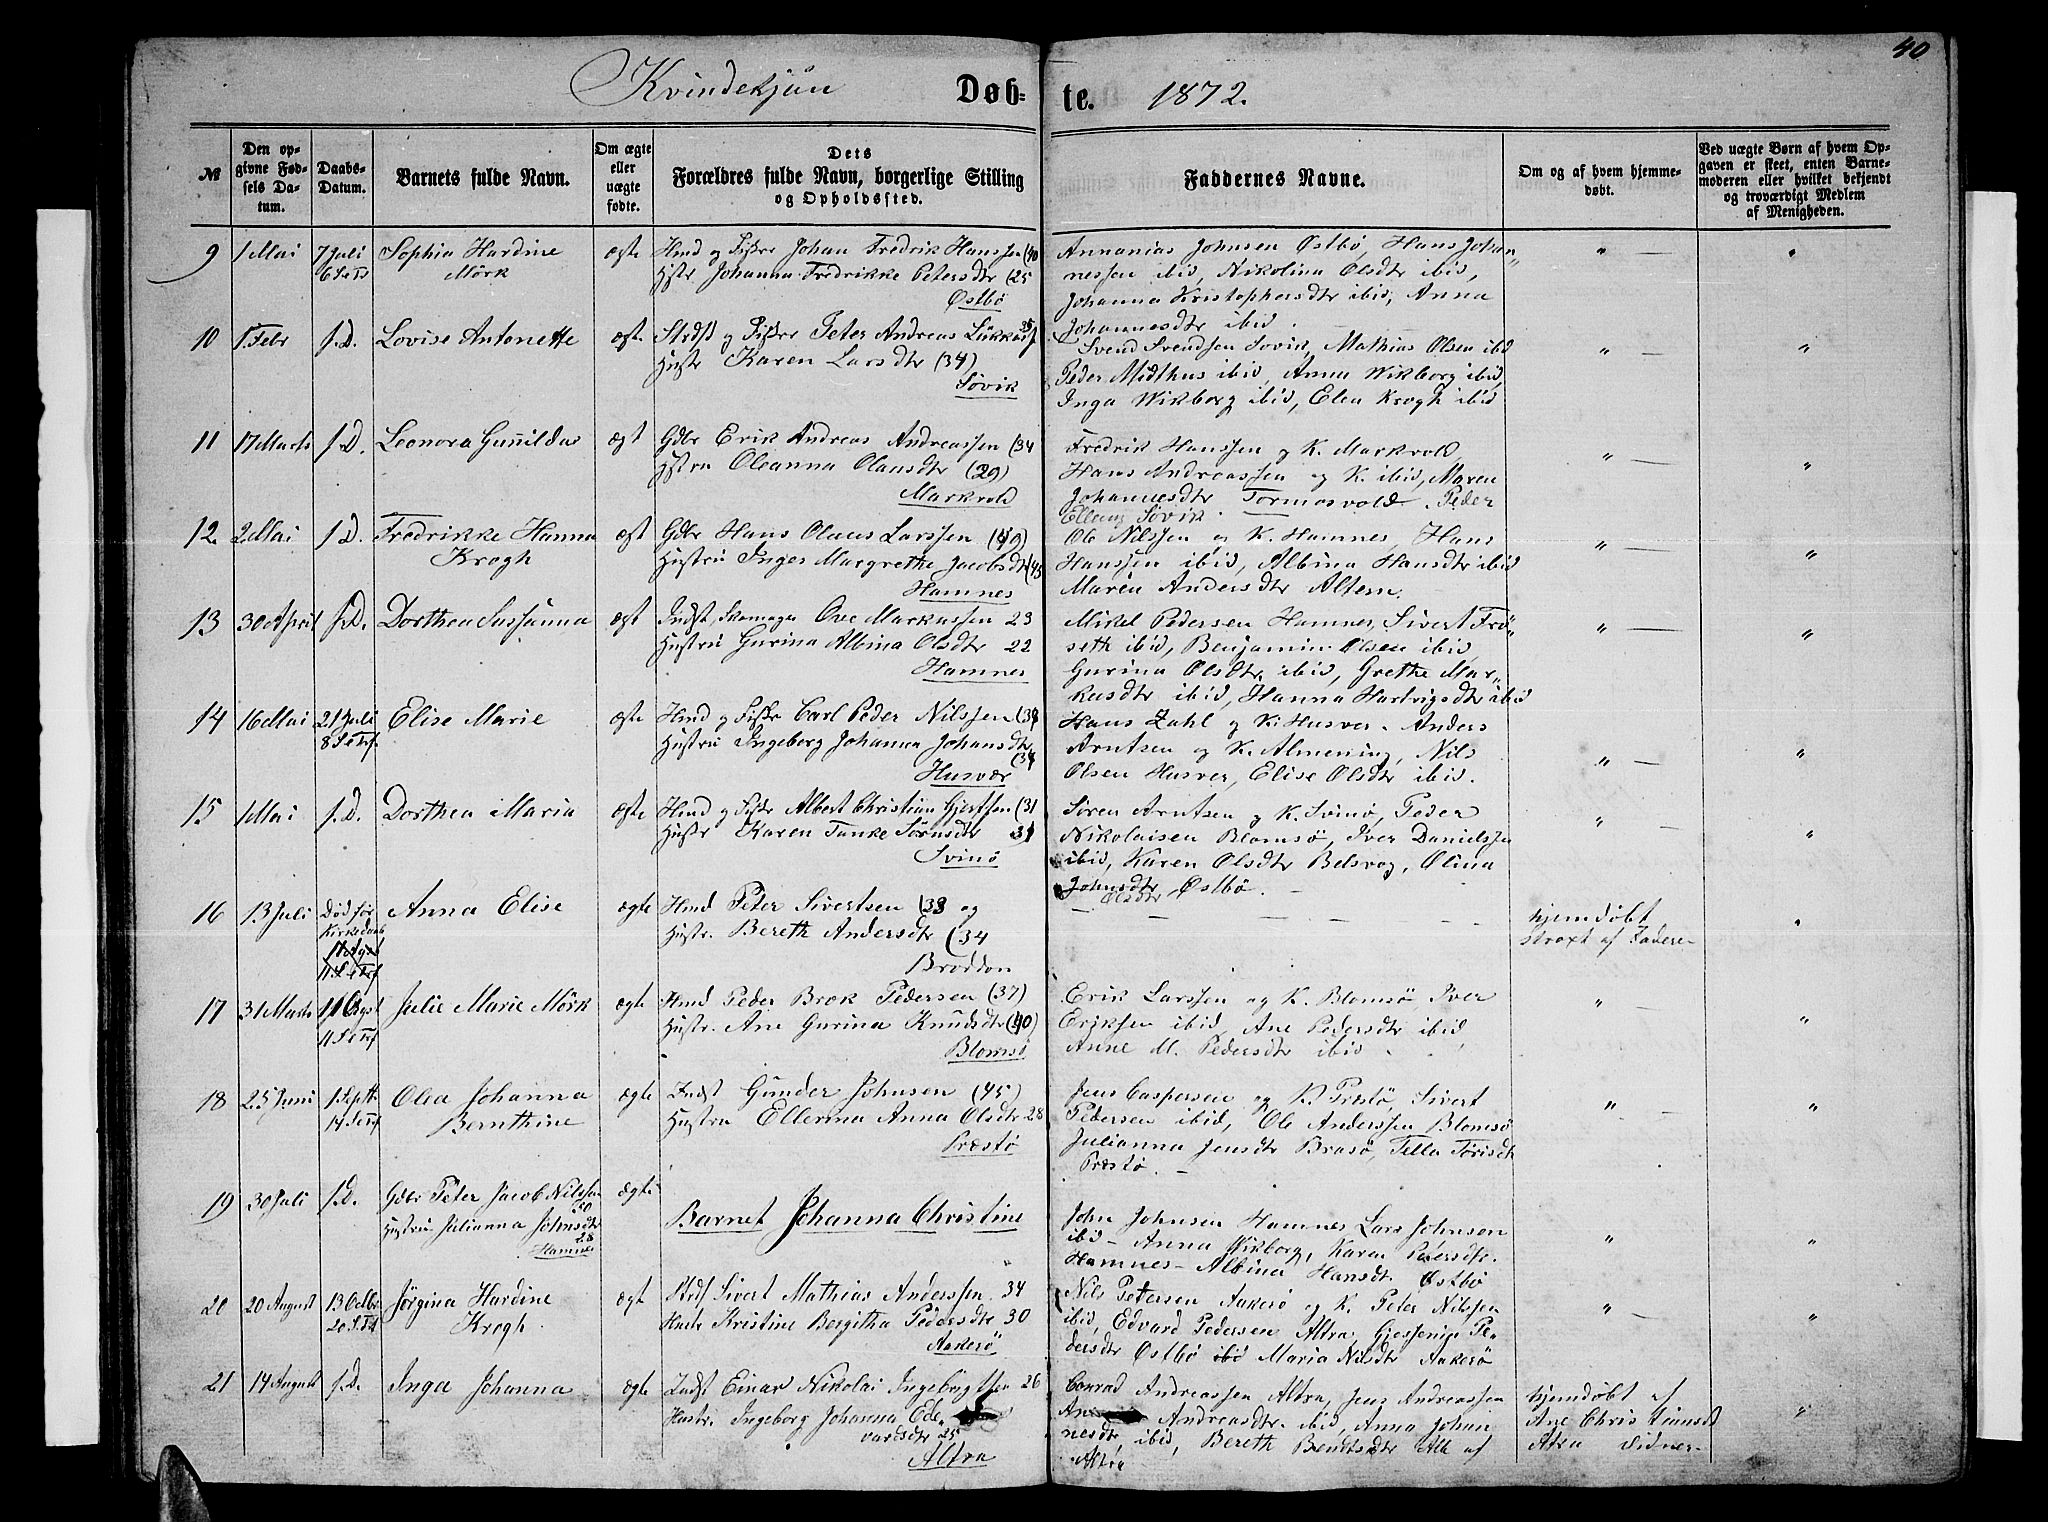 40
Kvindekjøn Døb- te. 1872.
№
Den op-
givne Fød-
sels Da-
tum.
Daabs-
Datum.
Barnets fulde Navn.
Om ægte
eller
uægte
fødte.
Dets
Forældres fulde Navn, borgerlige Stilling
og Opholdssted.
Faddernes Navne.
Om og af hvem hjemme-
døbt.
Ved uægte Børn af hvem Op-
gaven er skeet, enten Barne-
moderen eller hvilket bekjendt
og troværdigt Medlem
af Menigheden.
9 1 Mai 7 Juli Sophia Hardine ægte Hmd og Fisker Johan Fredrik Hanssen (40
Mørk Hustr Johanna Fredrikke Petersdtr (25
Østbø
Annanias Johnsen Østbø, Hans Johan-
nessen ibid, Nikolina Olsdtr ibid,
Johanna Kristophersdtr ibid, Anna
Johannesdtr ibid.
10 1 Febr s.D. Lovise Antonette ægte Strdsd og Fisker Peter Andreas
Hustr Karen Larsdtr (34)
Søvik
Svend Svendsen Sovik, Mathias Olsen ibid
Peder Midthus ibid, Anna Wikborg ibid,
Inga Wikborg ibid, Elen Krogh ibid
11 17 Marts s.D. Leonora Gunilda ægt Gdbr Erik Andreas Andreassen (34
Hstru Oleanna Olausdtr (29)
Markvold
Fredrik Hanssen og K. Markvold,
Hans Andreassen og K. ibid, Maren
Johannesdtr Tormosvold. Peder
Ellung Søvik.
12 2 Mai s.D. Fredrikke Hanna ægt Gdbr Hans Olaus Larssen (49)
Krogh Hustru Inger Margrethe Jacobsdtr (45
Hamnes
Ole Nilssen og K. Hamnes, Hans
Hanssen ibid, Albina Hansdtr ibid
Maren Andersdtr Altern.
13 30 April s.D. Dorthea Sussanna ægt Indst Skomager Ove Markussen 23
Hustru Gurina Albina Olsdtr 22
Hamnes
Mikel Pedersen Hamnes, Sivert Frø-
seth ibid, Benjamin Olsen ibid,
Gurina Olsdtr ibid, Grethe Mar-
kusdtr ibid, Hanna Hartvigsdtr ibid
14 16 Mai 21 Juli Elise Marie ægte Hmd og Fisker Carl Peder Nilssen (34
Hustru Ingeborg Johanna Johansdtr (34
Husvær
Hans Zahl og K. Husver. Anders
Arntsen og K. Almening, Nils
Olsen Husver, Elise Olsdtr ibid.
15 1 Mai s.D. Dorthea Maria ægte Hmd og Fisker Albert Christian Gjertsen (31
Hustr Karen Tanke Sørnsdtr 31
Svinø
Sören Arntsen og K. Svinø, Peder
Nikolaisen Blomsø, Iver Danielssen
ibid, Karen Olsdtr Belsvog, Olina
Johnsdtr Østbø.
Olsdtr
16 13 Juli Død før Anna Elise ægte Hmd Peter Sivertsen (33 og
Kirkedaab Hustr. Bereth Andersdtr (34
Broddon
hjemdøbt
straxt af Fadere-
17 31 Marts 11 Augst Julie Marie Mörk ægte Hmd Peder Brok Pedersen (37)
Hustr. Ane Gurina Knudsdtr (40)
Blomsø
Erik Larssen og K. Blomsø, Iver
Eriksen ibid, Ane Pedersdtr ibid,
Anne M. Pedersdtr ibid.
18 25 Juni 1 Septb Olea Johanna ægte Indst Gunder Johnsen (45)
Bernthine Hustru Ellerina Anna Olsdtr 28
Præstø
Jens Caspersen og K. Prestø, Sivert
Pedersen ibid, Ole Anderssen Blomsø
Julianna Jensdtr Brasø,
Præstø.
19 30 Juli s.D. Gdbr Peter Jacob Nilssen ægte Barnet Johanna Christine
30
Hustru Julianna Johnsdtr
28
Hamnes
John Johnsen Hamnes Lars Johnsen
ibid - Anna Wikborg, Karen Pedersdtr.
Hamnes - Albina Hansdtr Østbø
20 20 August 13 Octbr Jørgina Hardine ægt Strds Sivert Mathias Anderssen. 34
Krogh Hustr Kristine Bergitha Pedersdtr 30
Aakerø
Nils Petersen Aakerø og K. Peter Nilssen
ibid, Edvard Pedersen Altra, Gjesserine Pe-
dersdtr Østbø ibid Maria Nilsdtr Aakerø
21 14 August s.D. Inga Johanna ægte Indst Einar Nikolai Ingebrigtsen 26
Hustr. Ingeborg Johanna Ed-
vardsdtr 25
Altra
Conrad Andreassen Altra, Jens Andreassen
Andreasdtr. ibid, Anna Johan
nesdtr, ibid, Bereth Bendtsdtr
Altra
hjemdøbt af
Ane Chris